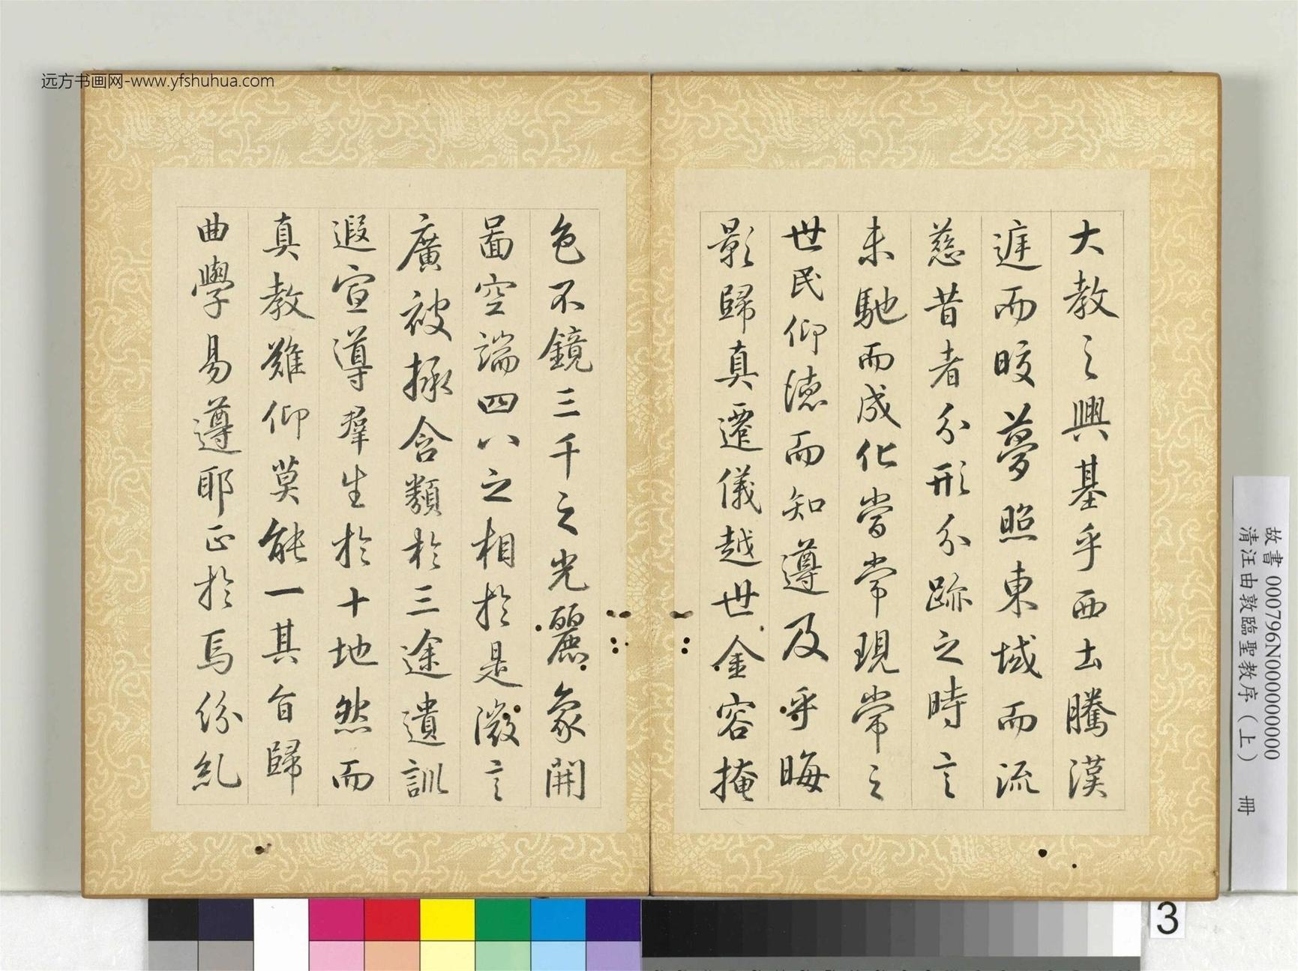 远方书画网-www.yfshuhua.com
大教之興基乎西土騰漢
庭而皎夢照東域而流
慈昔者分形分跡之時言
未馳而成化當常現常之
世民仰德而知遵及乎晦
影歸真遷儀越世金容掩
色不鏡三千之光麗象開
圖空端四八之相於是微言
廣被拯含類於三途遺訓
遐宣導羣生於十地然而
真教難仰莫能一其旨歸
曲學易遵耶正於焉紛糺
故書 000796N000000000
清汪由敦臨聖教序(上) 冊
3